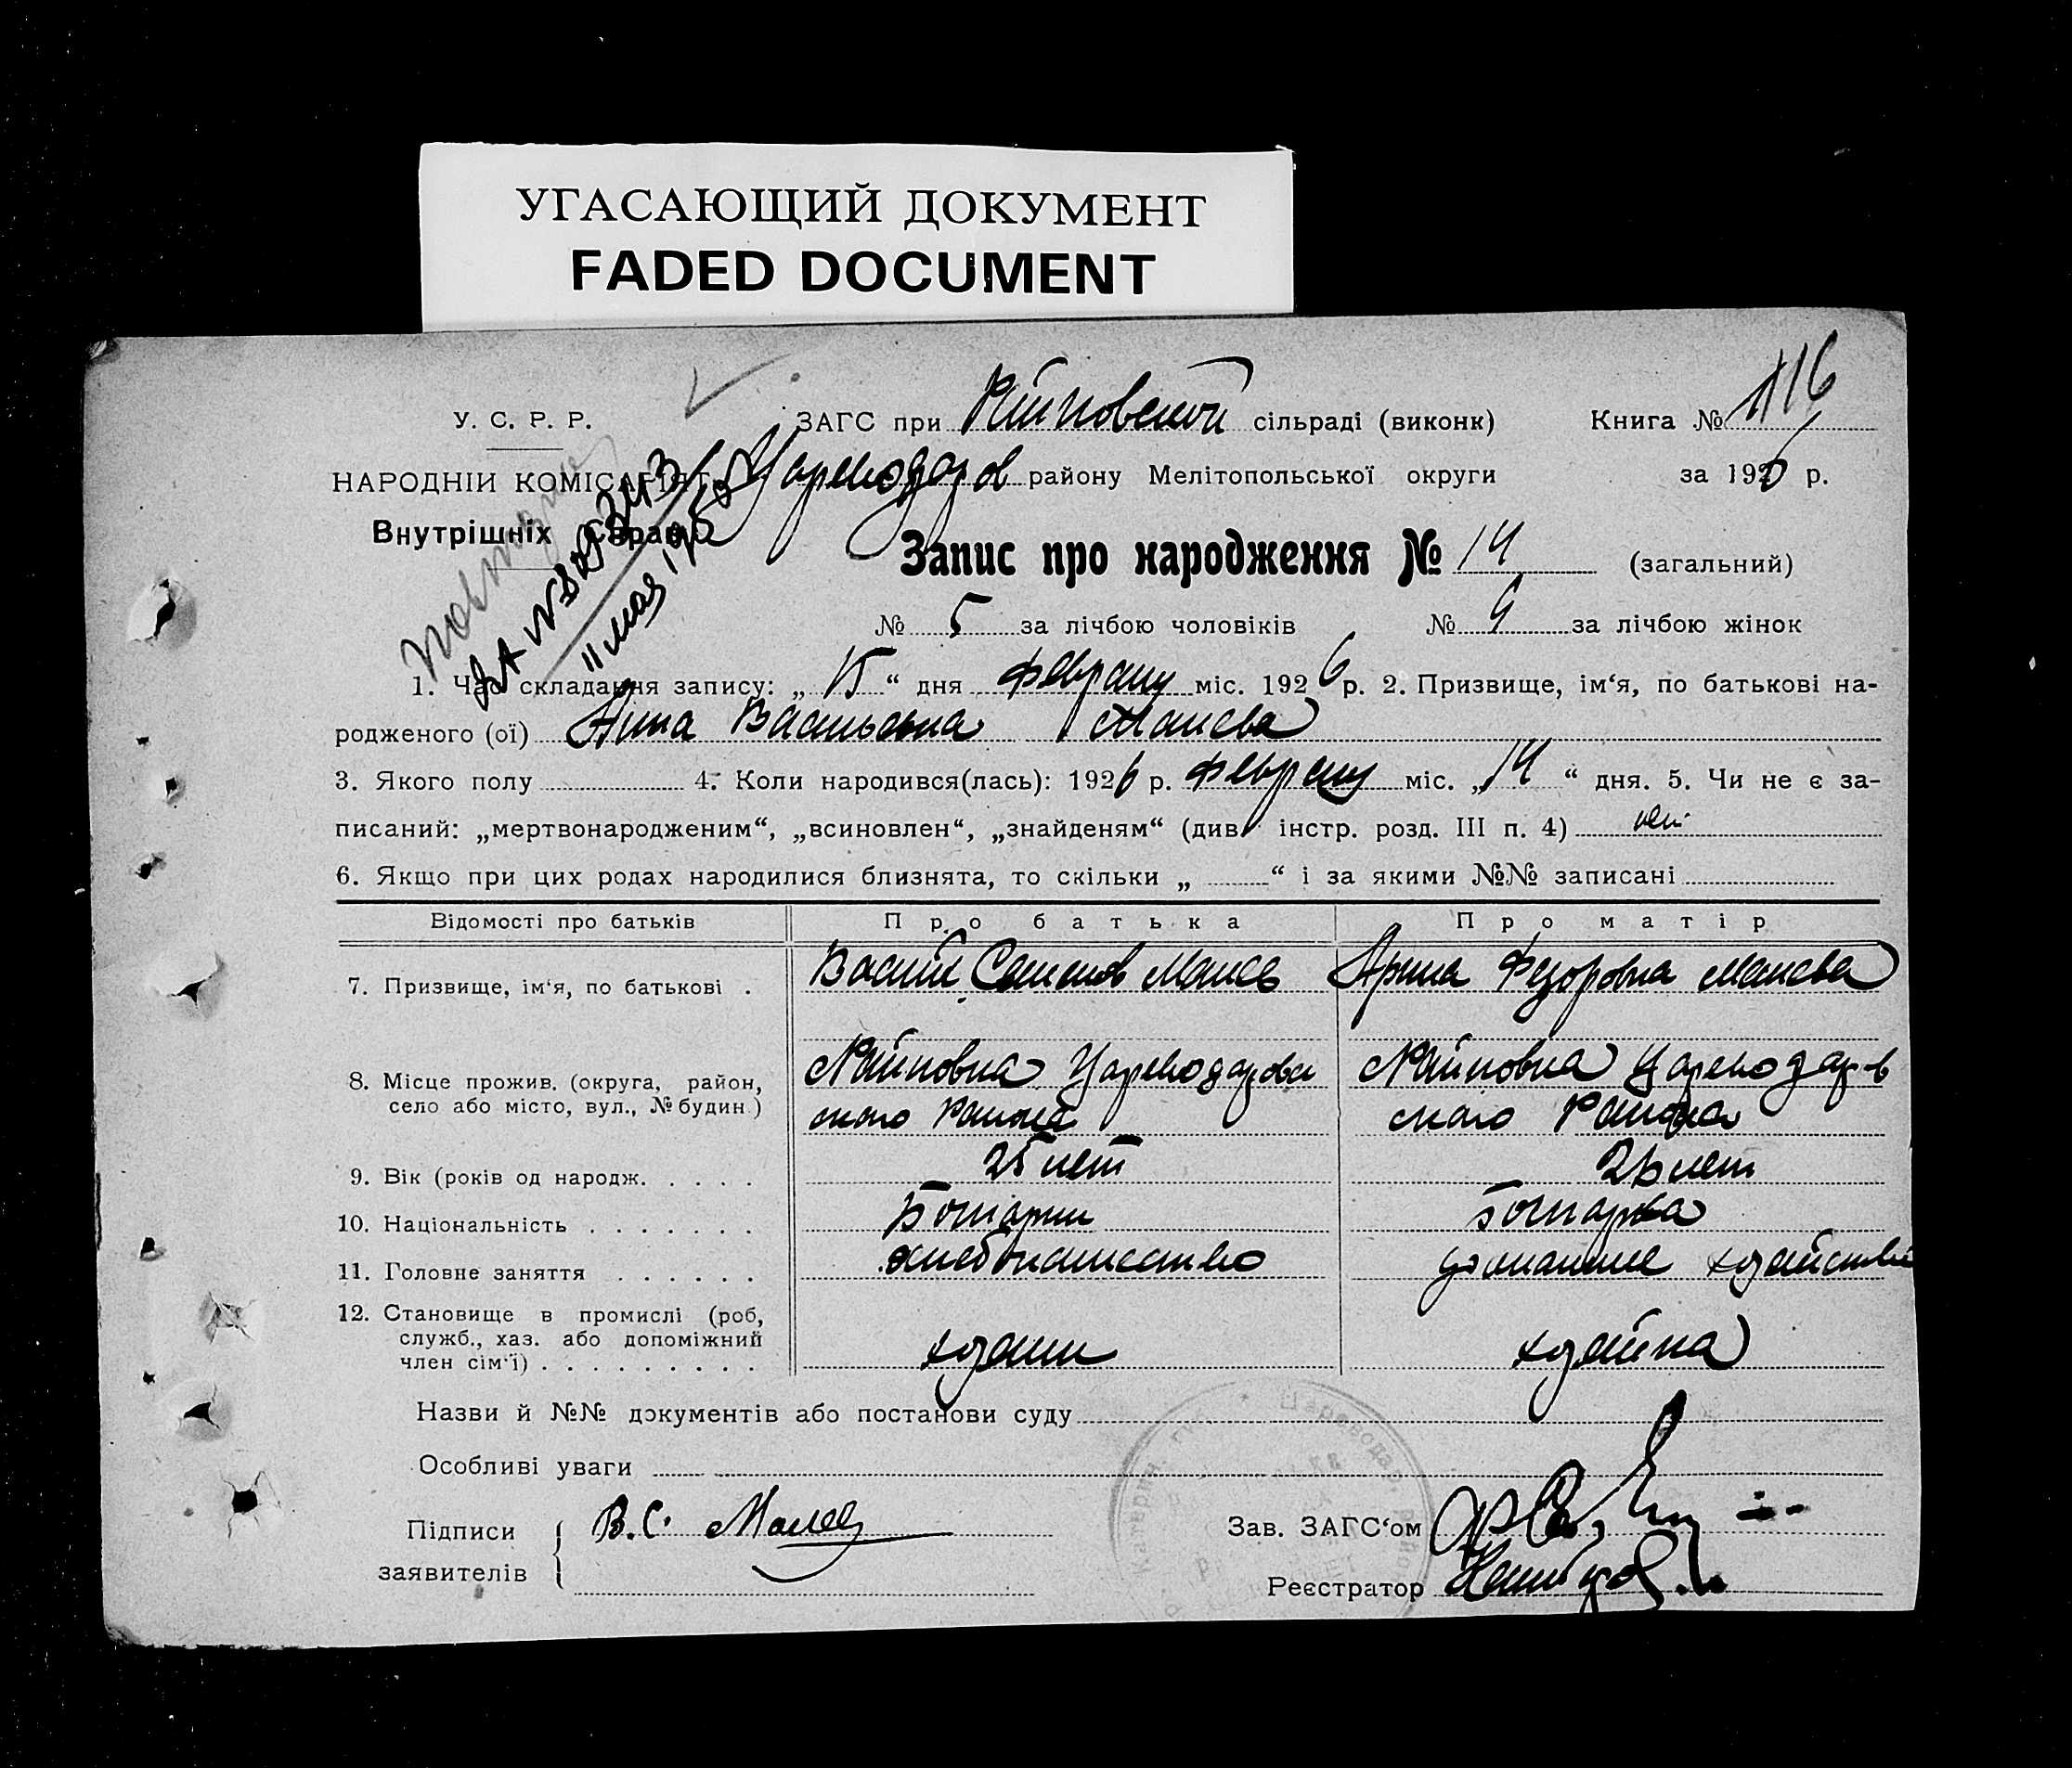 УГАСАЮЩИЙ ДОКУМЕНТ
FADED DOCUMENT
У. С. Р. Р.
ЗАГС при Райновской сільраді (виконк) Книга № 116
НАРОДНІЙ КОМІСАРІЯТ
Цареводаров району Мелітопольської округи за 1926 р.
Внутрішніх Справ
11 мая 195
Запис про народження № 14 (загальний)
№ 5 за лічбою чоловіків № 9 за лічбою жінок
1. Час складання запису: „ 15 “ дня февралу міс. 1926 р. 2. Призвище, ім‘я, по батькові на-
родженого (ої) Нина Васильевна Малева
3. Якого полу 4. Коли народився(лась): 1926 р. февралу міс. „ 14 “ дня. 5. Чи не є за-
писаний: „мертвонародженим“, „всиновлен“, „знайденям“ (див. інстр. розд. III п. 4) нет
6. Якщо при цих родах народилися близнята, то скільки „ “ і за якими №№ записані
Відомості про батьків Про батька Про матір
7. Призвище, ім‘я, по батькові . Василь Семенов Малев Арина Федоровна Малева
8. Місце прожив. (округа, район, село або місто, вул., № будин.) Райновка Цареводаров Райновка Цареводаров
ского Района ского Района
9. Вік (років од народж. . . . . 25 лет 26 лет
10. Національність . . . . . . . Болгарин Болгарка
11. Головне заняття . . . . . . хлебопашество домашнее хозяйство
12. Становище в промислі (роб, служб., хаз. або допоміжний член сім‘ї) . . . . . . . . . хозяин хозяйка
Назви й №№ документів або постанови суду
Особливі уваги
Підписи заявителів В.С. Малев
Зав. ЗАГС‘ом
Реєстратор